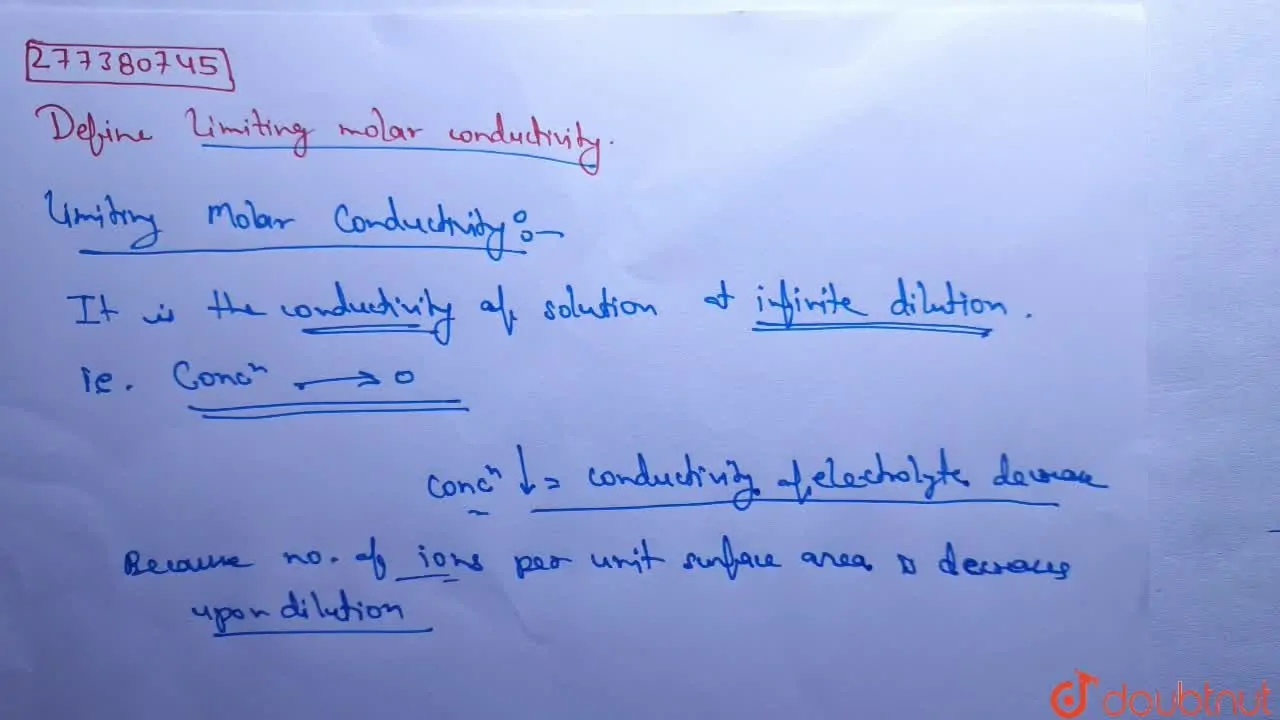 277380745
Define Limiting molar conductivity.
Limiting Molar Conductivity:-
It is the conductivity of solution at infinite dilution.
ie. Concⁿ → 0
concⁿ ↓ = conductivity of electrolyte decrease
Because no. of ions per unit surface area is decreases
upon dilution
doubtnut